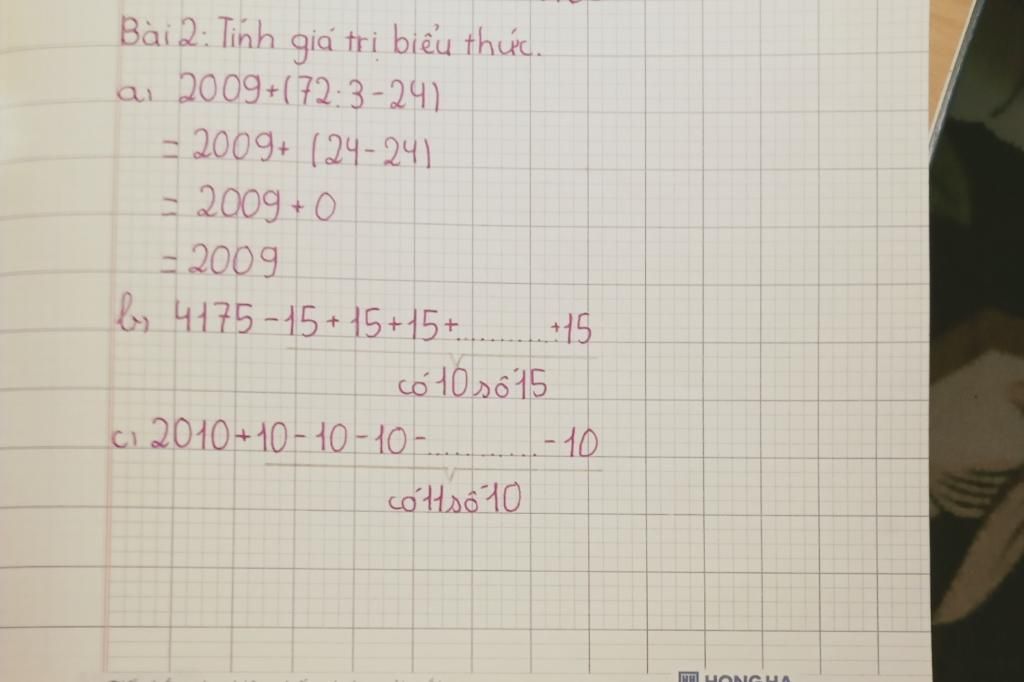 Bài 2: Tính giá trị biểu thức.
a, 2009+(72:3-24)
= 2009+ (24-24)
= 2009+0
= 2009
b, 4175-15+15+15+..........+15
có 10 số 15
c, 2010+10-10-10-..........-10
có 11 số 10
HONG HA